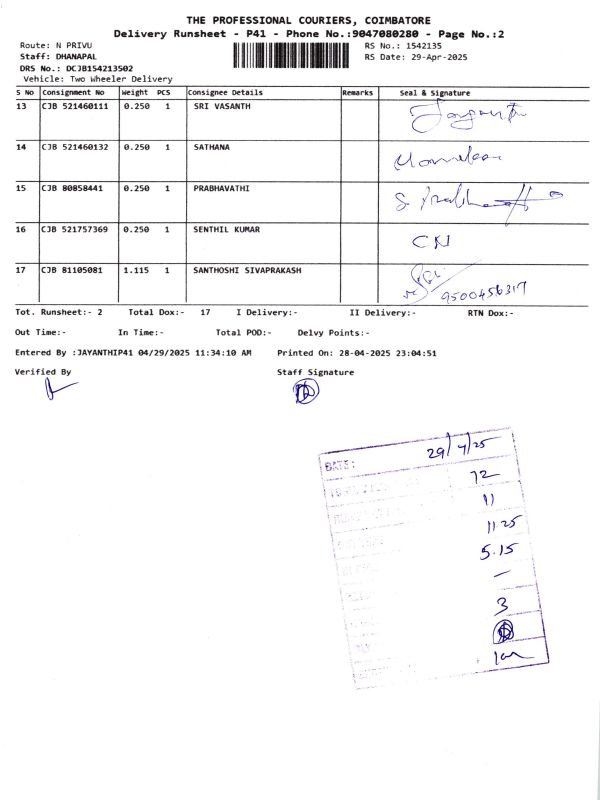 THE PROFESSIONAL COURIERS, COIMBATORE
Delivery Runsheet - P41 - Phone No.:9047080280 - Page No.:2
Route: N PRIVU RS No.: 1542135
Staff: DHANAPAL RS Date: 29-Apr-2025
DRS No.: DCJB154213502
Vehicle: Two Wheeler Delivery
S No Consignment No Weight PCS Consignee Details Remarks Seal & Signature
13 CJB 521460111 0.250 1 SRI VASANTH
14 CJB 521460132 0.250 1 SATHANA
15 CJB 80858441 0.250 1 PRABHAVATHI
16 CJB 521757369 0.250 1 SENTHIL KUMAR CN
17 CJB 81105081 1.115 1 SANTHOSHI SIVAPRAKASH
9500456317
Tot. Runsheet:- 2 Total Dox:- 17 I Delivery:- II Delivery:- RTN Dox:-
Out Time:- In Time:- Total POD:- Delvy Points:-
Entered By :JAYANTHIP41 04/29/2025 11:34:10 AM Printed On: 28-04-2025 23:04:51
Verified By Staff Signature
DATE: 29/4/25
72
11
11.25
5.15
—
3